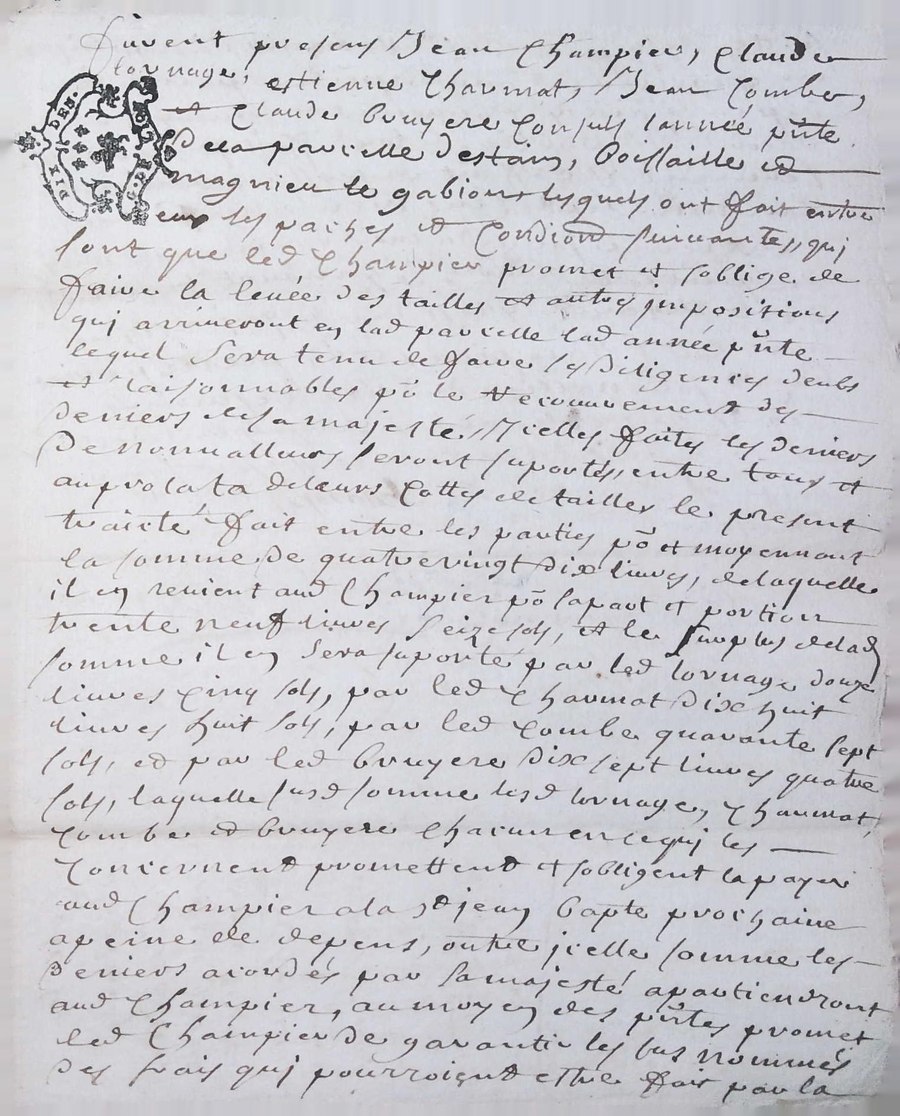 furent presens Jean Champier, Claude
Lornage, estienne Charmat, Jean Combe,
et Claude bruyere Consuls lannée pnte
De la parcelle destain, boissaille et
magnieu le gabion lesquels ont fait entre
eux les paches et suivantes, qui
sont que led Champier promet et soblige de
faire la levée des tailles et autres impositions
qui arriveront en lad parcelle lad année pnte
lequel sera tenu de faire les diligences deubs
et raisonnables po le recouvrement des
deniers de sa majesté, Icelles faites les deniers
De nonvalleurs seront suportés, entre tous et
au prolata de leurs Cottes de tailles le present
traicté fait entre les parties po et moyennant
la somme de quatrevingt dix livres, de laquelle
il en revient aud Champier po sa part et portion
trente neuf livres seize sols, et le surplus de lad
somme il en sera suporté par led lornage douze
livres Cinq sols, par led Charmat dix huit
livres huit sols, par led Combe quarante sept
sols, et par led bruyere dix sept livres quatre
sols, laquelle susd somme lesd lornage, Charmat,
Combe et bruyere Chacun en ce qui les
Concernent promettent et sobligent la payer
aud Champier a la St jean bapte prochaine
a peine de depens, outre jcelle somme les
deniers acordés par sa majesté apartiendront
aud Champier, au moyen des pntes promet
led Champier de garantir les sus nommés
des frais qui pourroient estre fait par la